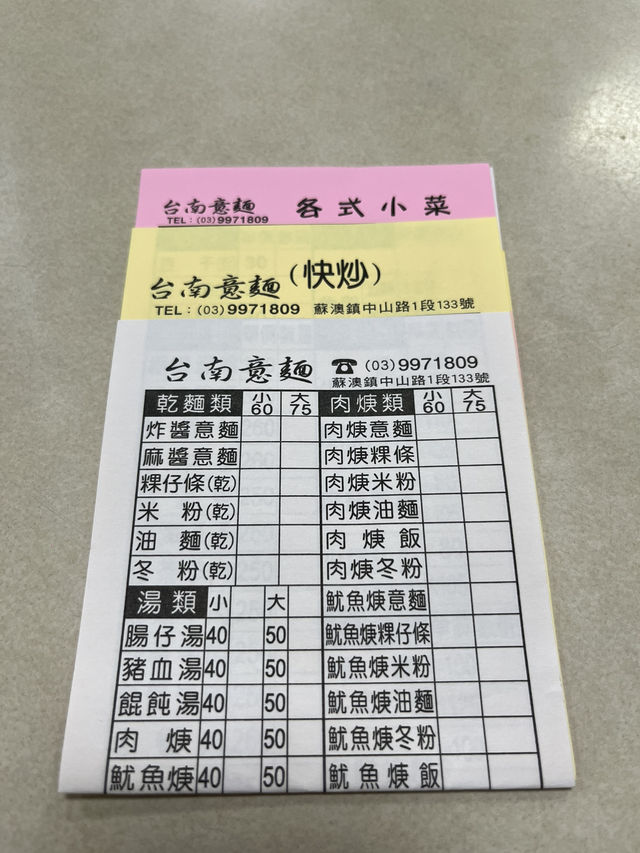 台南意麵 各式小菜
TEL：(03)9971809
台南意麵(快炒)
TEL：(03)9971809 蘇澳鎮中山路1段133號
台南意麵 ☎(03)9971809
蘇澳鎮中山路1段133號
乾麵類 小60 大75 肉焿類 小60 大75
炸醬意麵 肉焿意麵
麻醬意麵 肉焿粿條
粿仔條(乾) 肉焿米粉
米粉(乾) 肉焿油麵
油麵(乾) 肉焿飯
冬粉(乾) 肉焿冬粉
湯類 小 大 魷魚焿意麵
腸仔湯 40 50 魷魚焿粿仔條
豬血湯 40 50 魷魚焿米粉
餛飩湯 40 50 魷魚焿油麵
肉焿 40 50 魷魚焿冬粉
魷魚焿 40 50 魷魚焿飯